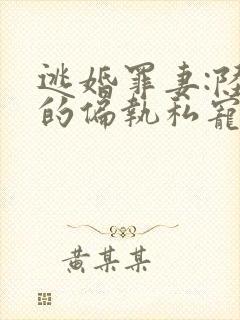 逃婚罪妻:陸
的偏執私寵
黄某某